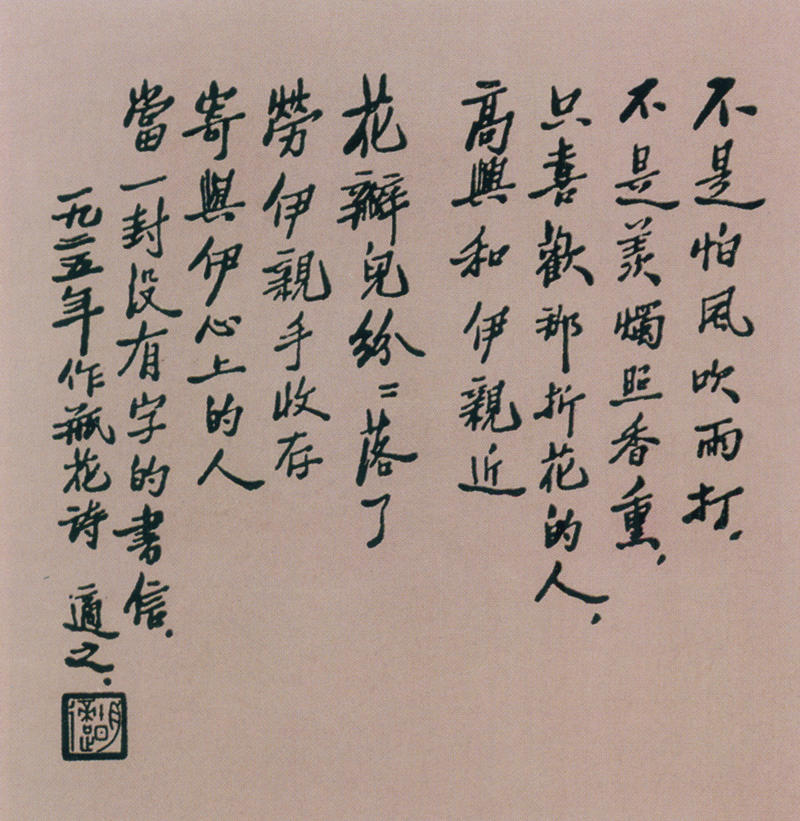 不是怕風吹雨打，
不是羨燭照香熏，
只喜歡那折花的人，
高興和伊親近
花瓣兒紛〻落了
勞伊親手收存
寄與伊心上的人
當一封没有字的書信。
一九二五年作瓶花詩 適之。
胡適